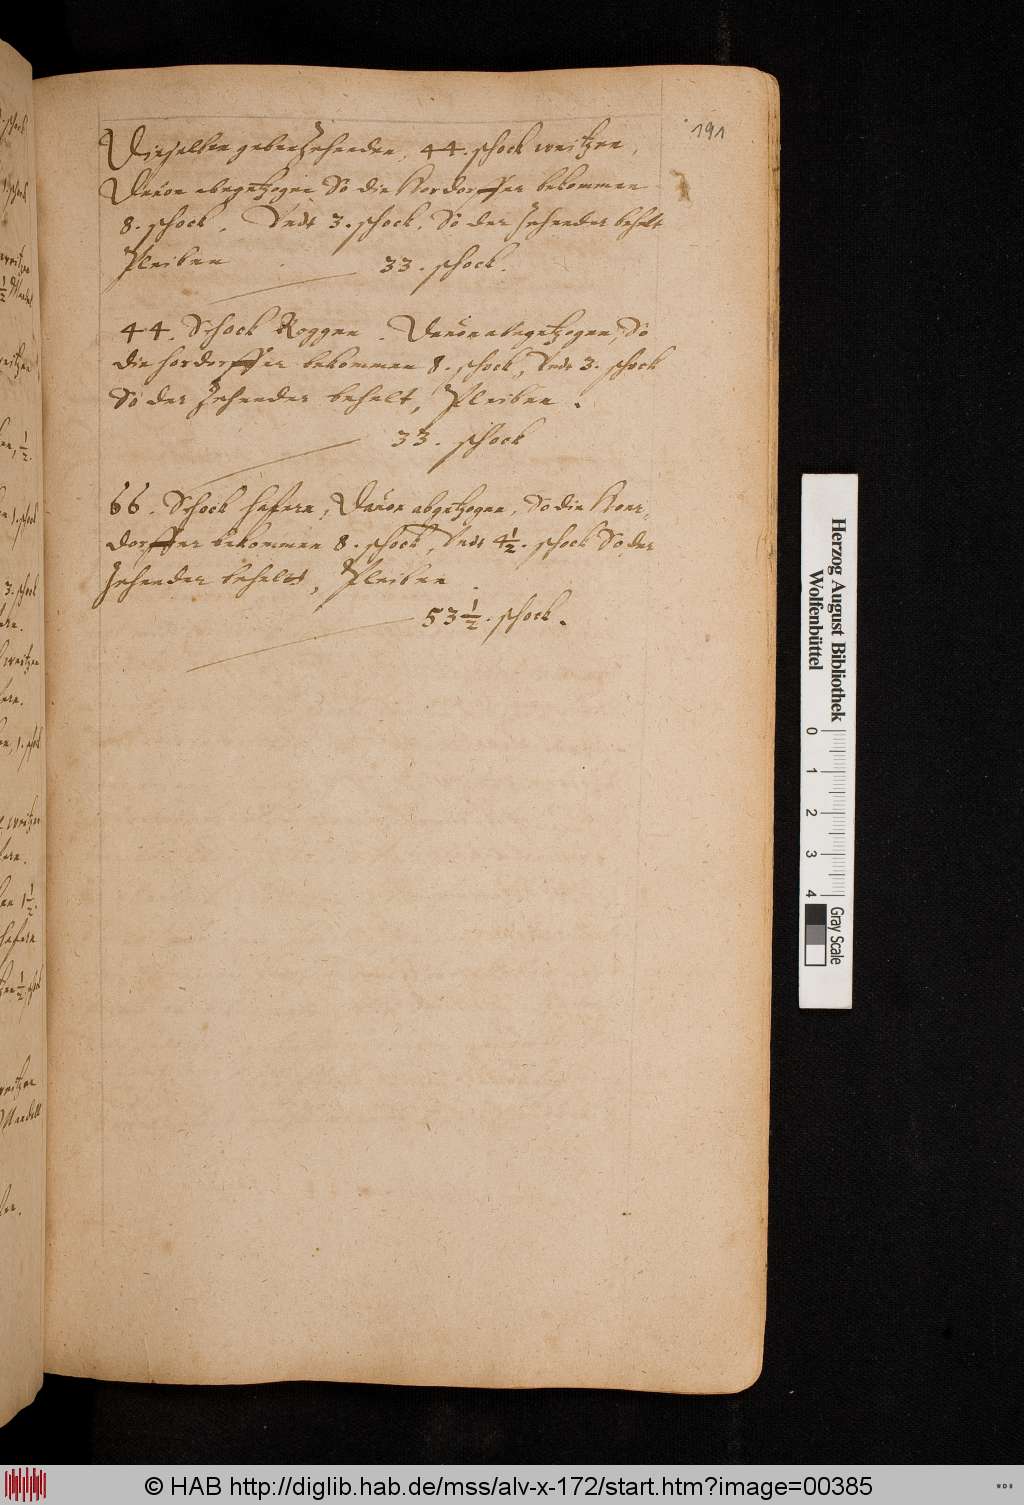 191
Dieselben geben Zehenden, 44. schock weitzen,
Dauon abgetzogen So die Hordorffer bekommen
8. schock. Vndt 3. schock. So der Zehender behelt
Pleiben 33. schock.
44. Schock Roggen. Dauon abgetzogen, So
die hordorffer bekommen 8. schock, Vndt 3. schock
So der Zehender behelt, Pleiben.
33. schock
66. Schock hafern, Dauon abgetzogen, So die Hor,,
dorffer bekommen 8. schock, Vndt 4½. schock So der
Zehender behelt, Pleiben
53½. schock.
Herzog August Bibliothek
Wolfenbüttel
0 1 2 3 4
Gray Scale
© HAB http://diglib.hab.de/mss/alv-x-172/start.htm?image=00385